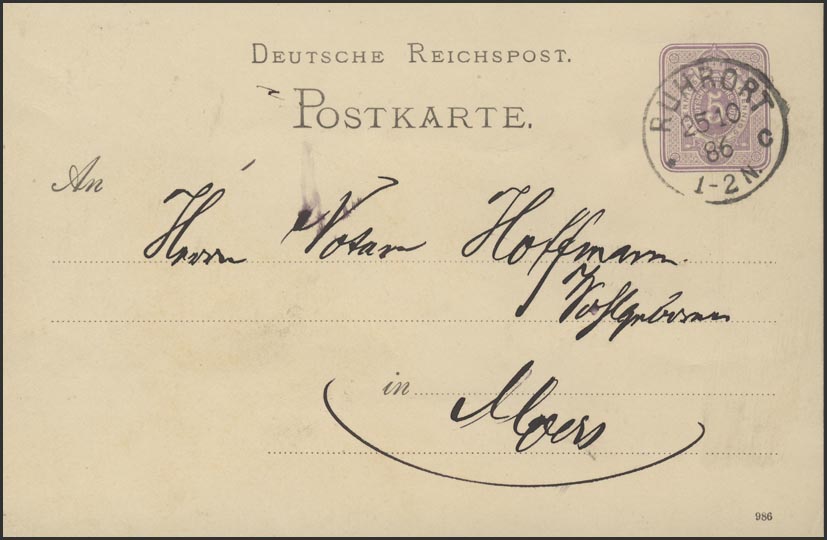 DEUTSCHE REICHSPOST.
POSTKARTE.
RUHRORT
25 10
86
C
1-2 N.
An
Herrn Notar Hoffmann.
Wohlgeboren
in
Moers
986